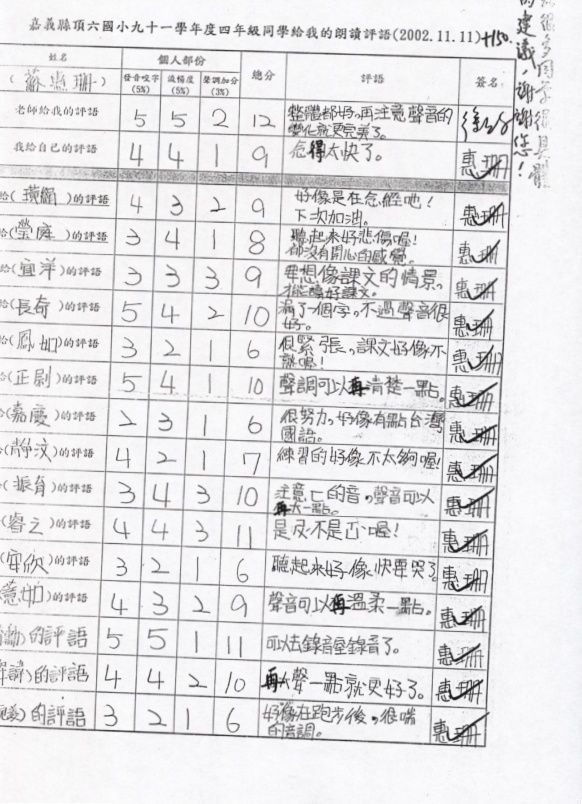 嘉義縣頂六國小九十一學年度四年級同學給我的朗讀評語(2002.11.11)+150.
很多同學很具體
的建議，謝謝您！
姓名 個人部份 總分 評語 簽名
發音咬字(5%) 流暢度(5%) 聲調加分(3%)
(蘇惠珊)
老師給我的評語 5 5 2 12 整體都好，再注意聲音的
變化就更完美了。
我給自己的評語 4 4 1 9 念得太快了。 惠珊
給( )的評語 4 3 2 9 好像是在念經吔！
下次加油。 惠珊
給(瑩庭)的評語 3 4 1 8 聽起來好悲傷喔！
都沒有開心的感覺。 惠珊
給(宜洋)的評語 3 3 3 9 要想像課文的情景，
才能讀好課文。 惠珊
給(長奇)的評語 5 4 2 10 漏了一個字。不過聲音很
好。 惠珊
給(鳳如)的評語 3 2 1 6 很緊張，課文好像不
熟喔！ 惠珊
(正尉)的評語 5 4 1 10 聲調可以再清楚一點。 惠珊
(嘉慶)的評語 2 3 1 6 很努力，好像有點台灣
國語。 惠珊
(靜汶)的評語 4 2 1 7 練習的好像不太夠喔！ 惠珊
(振育)的評語 3 4 3 10 注意ㄈ的音，聲音可以
再大一點。 惠珊
(睿之)的評語 4 4 3 11 是反不是否喔！ 惠珊
(安欣)的評語 3 2 1 6 聽起來好像快要哭了 惠珊
(慧如)的評語 4 3 2 9 聲音可以再溫柔一點。 惠珊
)的評語 5 5 1 11 可以去錄音室錄音了。 惠珊
)的評語 4 4 2 10 再大聲一點就更好了。 惠珊
)的評語 3 2 1 6 好像在跑步後，很喘
的音調。 惠珊